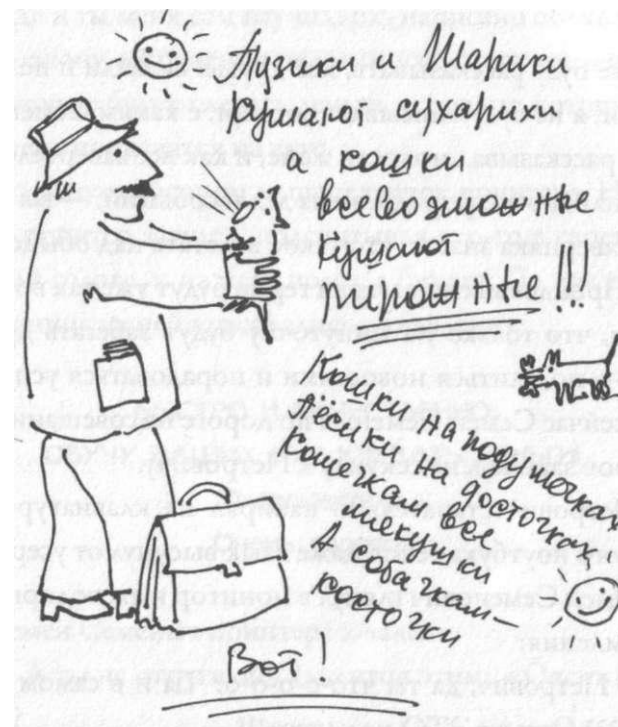 Тузики и Шарики
кушают сухарики
а кошки
всевозможные
кушают
пирожные!!!
Кошки на подушечках
Пёсики на досточках
Кошечкам все
плюшки
А собачкам—
косточки
Вот!